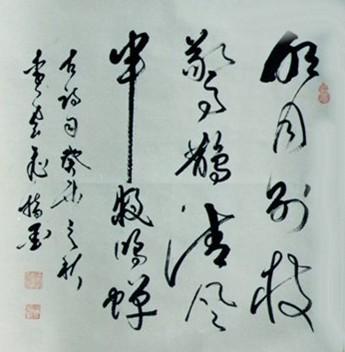 明月别枝
驚鵲清风
半夜鸣蝉
古詩句癸未之秋